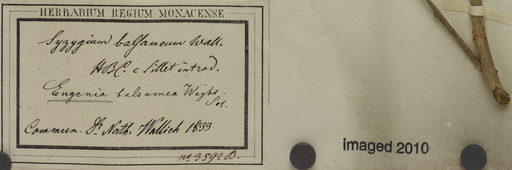 HERBARIUM REGIUM MONACENSE
Syzygium balsameum Wall.
HBC. e Sillet introd.
Eugenia balsamea Wight.
Commun. Dr. Nath. Wallich 1833
no 3592 B.
imaged 2010